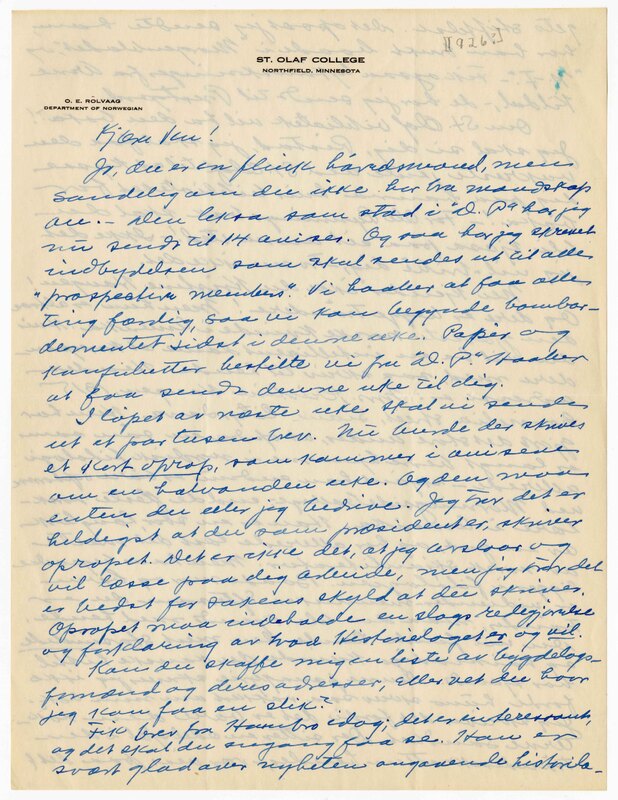 [1926?]
ST. OLAF COLLEGE
NORTHFIELD, MINNESOTA
O. E. RÖLVAAG
DEPARTMENT OF NORWEGIAN
Kjære Ven!
Jo, du er en flink haandsmand, men
sandelig om du ikke bør ta mandskap
an. — Den leksa som stod i "D. P." har jeg
nu sendt til 14 aviser. Og saa har jeg skrevet
indbydelsen som skal sendes ut til alle
"prospective members". Vi haaber at faa alle
ting færdig, saa vi kan begynde bombar-
dementet sidst i denne uke. Papir og
konvolutter bestilte vi fra "D. P." Haaber
at faa sendt denne uke til dig.
I løpet av næste uke skal vi sende
ut et par tusen brev. Nu burde der skrives
et kort oprop, som kommer i avisene
om en halvanden uke. Og den maa
enten du eller jeg bedrive. Jeg tror det er
heldigst at du som præsident er, skriver
opropet. Det er ikke det, at jeg avslaar og
vil læsse paa dig arbeide, men jeg tror det
er bedst for sakens skyld at du skriver.
Opropet maa indeholde en slags redegjørelse
og forklaring av hvad Historielaget er og vil.
Kan du skaffe mig en liste av bygdelags-
formænd og deres adresser, eller vet du hvor
jeg kan faa en slik?
Fik brev fra Hambro idag; det er interessant,
og det skal du engang faa se. Han er
svært glad over nyheten angaaende historiela-